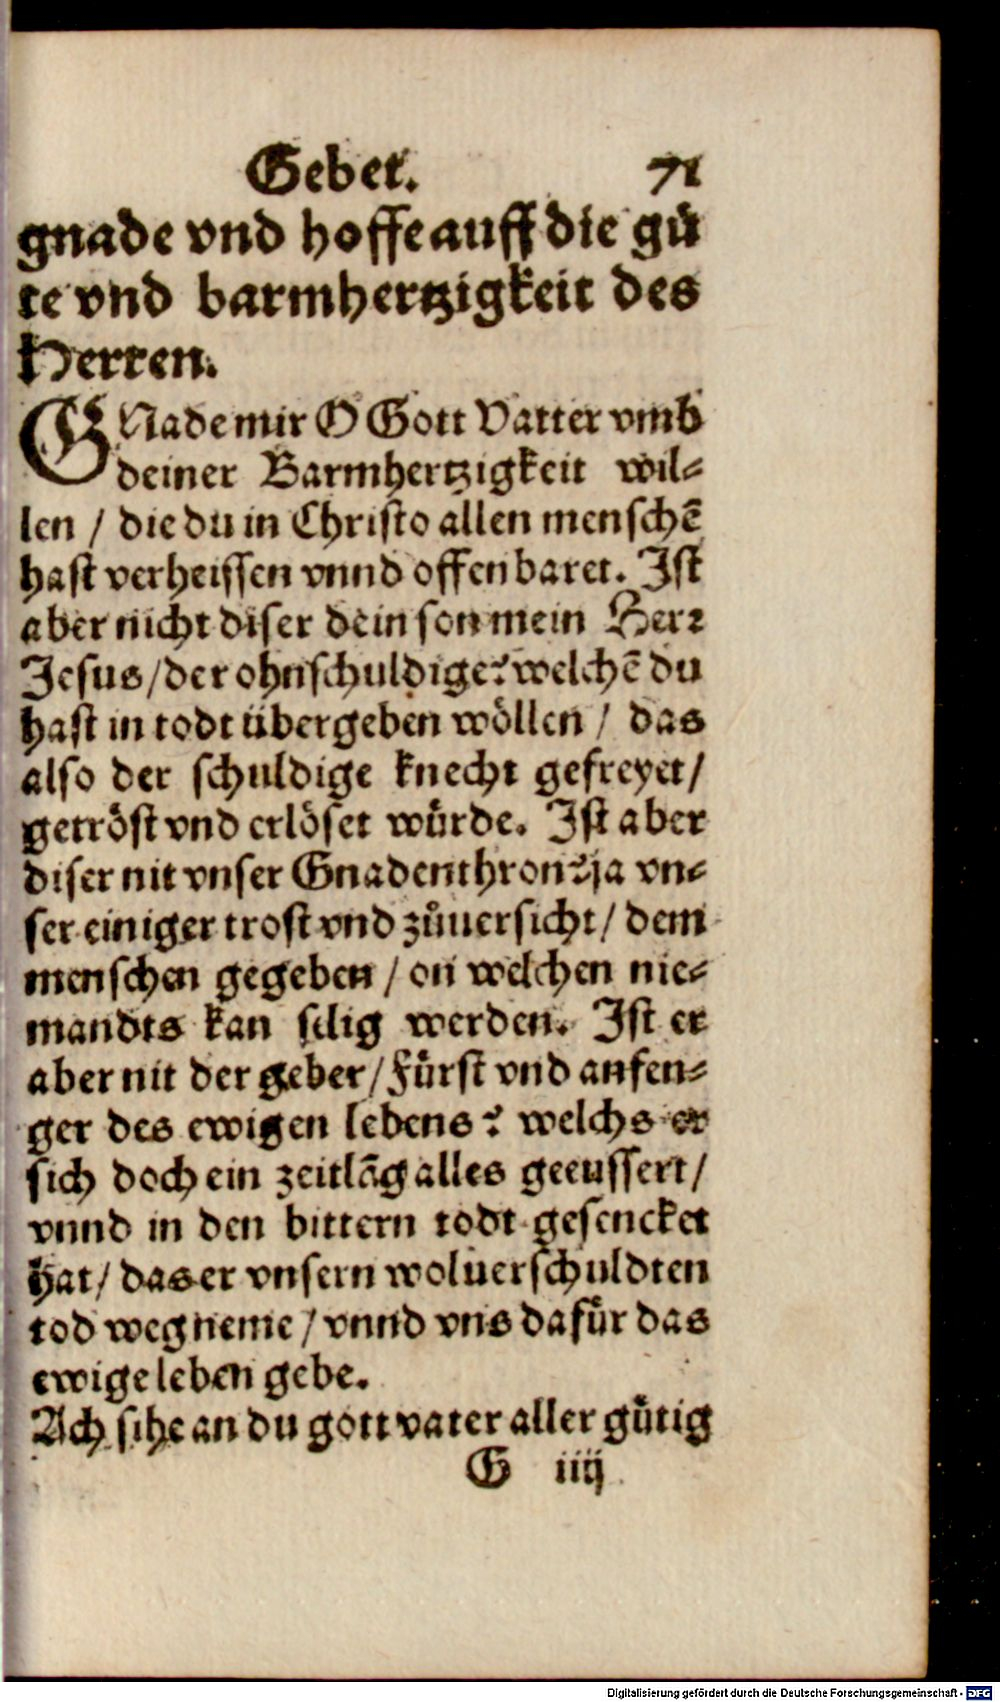 Gebet. 71
gnade vnd hoffe auff die gůͤ
te vnd barmhertzigkeit des
Herren.
GNade mir O Gott Vatter vmb
deiner Barmhertzigkeit wil⸗
len / die du in Christo allen menschẽ
hast verheissen vnnd offenbaret. Ist
aber nicht diser dein son mein Herꝛ
Jesus / der ohnschuldige? welchẽ du
hast in todt übergeben wöllen / das
also der schuldige knecht gefreyet /
getröst vnd erlöset würde. Ist aber
diser nit vnser Gnadenthron? ja vn⸗
ser einiger trost vnd zůuersicht / dem
menschen gegeben / on welchen nie⸗
mandts kan selig werden. Ist er
aber nit der geber / Fürst vnd anfen⸗
ger des ewigen lebens? welchs er
sich doch ein zeitlãg alles geeussert /
vnnd in den bittern todt gesencket
hat / das er vnsern woluerschuldten
tod weg neme / vnnd vns dafür das
ewige leben gebe.
Ach sihe an du gott vater aller gütig
G iiij
Digitalisierung gefördert durch die Deutsche Forschungsgemeinschaft - DFG